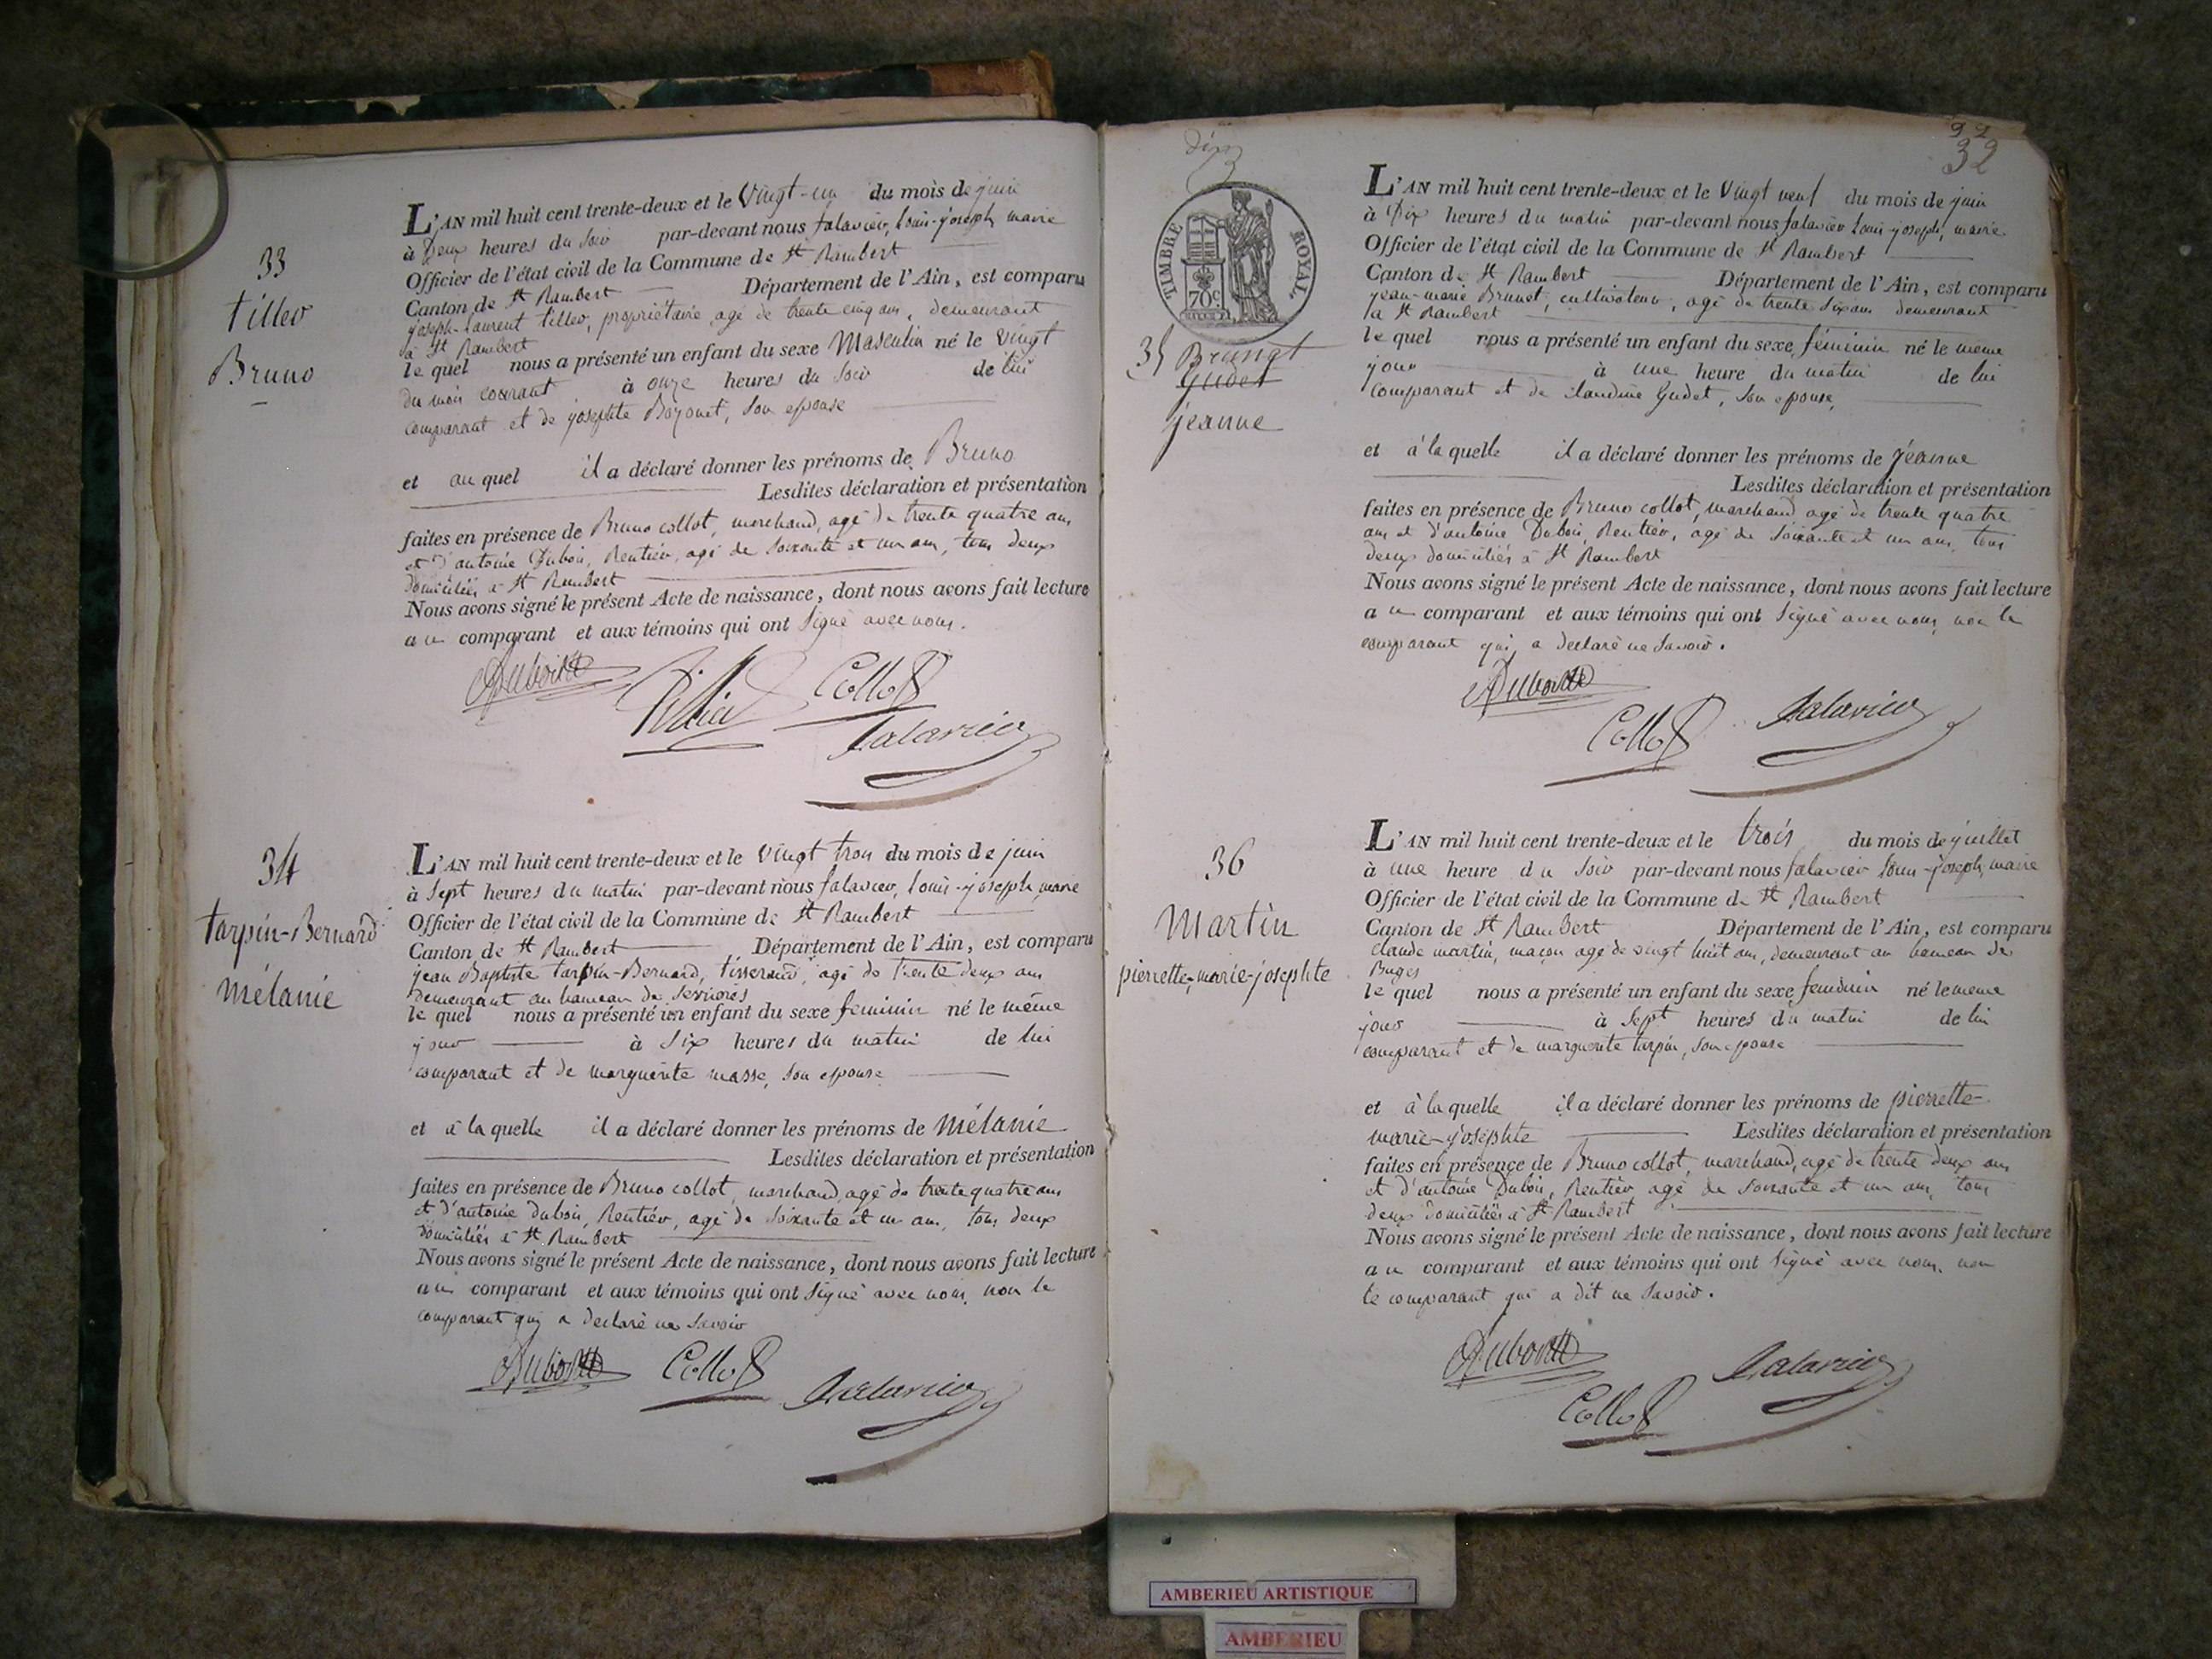 33
tiller
Bruno
L'AN mil huit cent trente-deux et le Vingt-un du mois de juin
à Deux heures du soir par-devant nous falavier, louis-joseph, maire
Officier de l'état civil de la Commune de St Rambert
Canton de St Rambert Département de l'Ain, est comparu
joseph-laurent tiller, propriétaire agé de trente cinq ans, demeurant
à St Rambert
le quel nous a présenté un enfant du sexe Masculin né le vingt
du mois courant à onze heures du soir de lui
comparant et de josephte, son epouse
et au quel il a déclaré donner les prénoms de Bruno
Lesdites déclaration et présentation
faites en présence de Bruno collot, marchand, agé de trente quatre ans
et d'antoine Dubois, Rentier, agé de soixante et un ans, tous deux
domiciliés à St Rambert
Nous avons signé le présent Acte de naissance, dont nous avons fait lecture
au comparant et aux témoins qui ont signé avec nous.
Dubois
Collot
falavier
34
tarpin-Bernard
mélanie
L'AN mil huit cent trente-deux et le vingt trois du mois de juin
à Sept heures du matin par-devant nous falavier, louis-joseph, maire
Officier de l'état civil de la Commune de St Rambert
Canton de St Rambert Département de l'Ain, est comparu
jean Baptiste tarpin-Bernard, tisserand, agé de trente deux ans
demeurant au hameau de serrières
le quel nous a présenté un enfant du sexe feminin né le même
jour à six heures du matin de lui
comparant et de marguerite masse, son epouse
et à la quelle il a déclaré donner les prénoms de mélanie
Lesdites déclaration et présentation
faites en présence de Bruno collot, marchand, agé de trente quatre ans
et d'antoine dubois, Rentier, agé de soixante et un ans, tous deux
domiciliés à St Rambert
Nous avons signé le présent Acte de naissance, dont nous avons fait lecture
au comparant et aux témoins qui ont signé avec nous, non le
comparant qui a declaré ne savoir
Dubois
Collot
falavier
32
TIMBRE ROYAL
70 c
35
Brunet
Gudet
jeanne
L'AN mil huit cent trente-deux et le Vingt neuf du mois de juin
à Dix heures du matin par-devant nous falavier louis-joseph, maire
Officier de l'état civil de la Commune de St Rambert
Canton de St Rambert Département de l'Ain, est comparu
jean-marie Brunet, cultivateur, agé de trente six ans demeurant
à St Rambert
le quel nous a présenté un enfant du sexe féminin né le même
jour à une heure du matin de lui
comparant et de claudine Gudet, son epouse,
et à la quelle il a déclaré donner les prénoms de jeanne
Lesdites déclaration et présentation
faites en présence de Bruno collot, marchand agé de trente quatre
ans et d'antoine Dubois, Rentier, agé de soixante et un ans, tous
deux domiciliés à St Rambert
Nous avons signé le présent Acte de naissance, dont nous avons fait lecture
au comparant et aux témoins qui ont signé avec nous, non le
comparant qui a declaré ne savoir.
Dubois
Collot
falavier
36
Martin
pierrette-marie-josephte
L'AN mil huit cent trente-deux et le trois du mois de juillet
à une heure du soir par-devant nous falavier louis-joseph, maire
Officier de l'état civil de la Commune de St Rambert
Canton de St Rambert Département de l'Ain, est comparu
claude martin, maçon agé de vingt huit ans, demeurant au hameau de
Buges
le quel nous a présenté un enfant du sexe feminin né le même
jour à sept heures du matin de lui
comparant et de marguerite tarpin, son epouse
et à la quelle il a déclaré donner les prénoms de pierrette-
marie-josephte Lesdites déclaration et présentation
faites en présence de Bruno collot, marchand, agé de trente deux ans
et d'antoine Dubois, Rentier agé de soixante et un ans, tous
deux domiciliés à St Rambert
Nous avons signé le présent Acte de naissance, dont nous avons fait lecture
au comparant et aux témoins qui ont signé avec nous, non
le comparant qui a dit ne savoir.
Dubois
Collot
falavier
AMBERIEU ARTISTIQUE
AMBERIEU